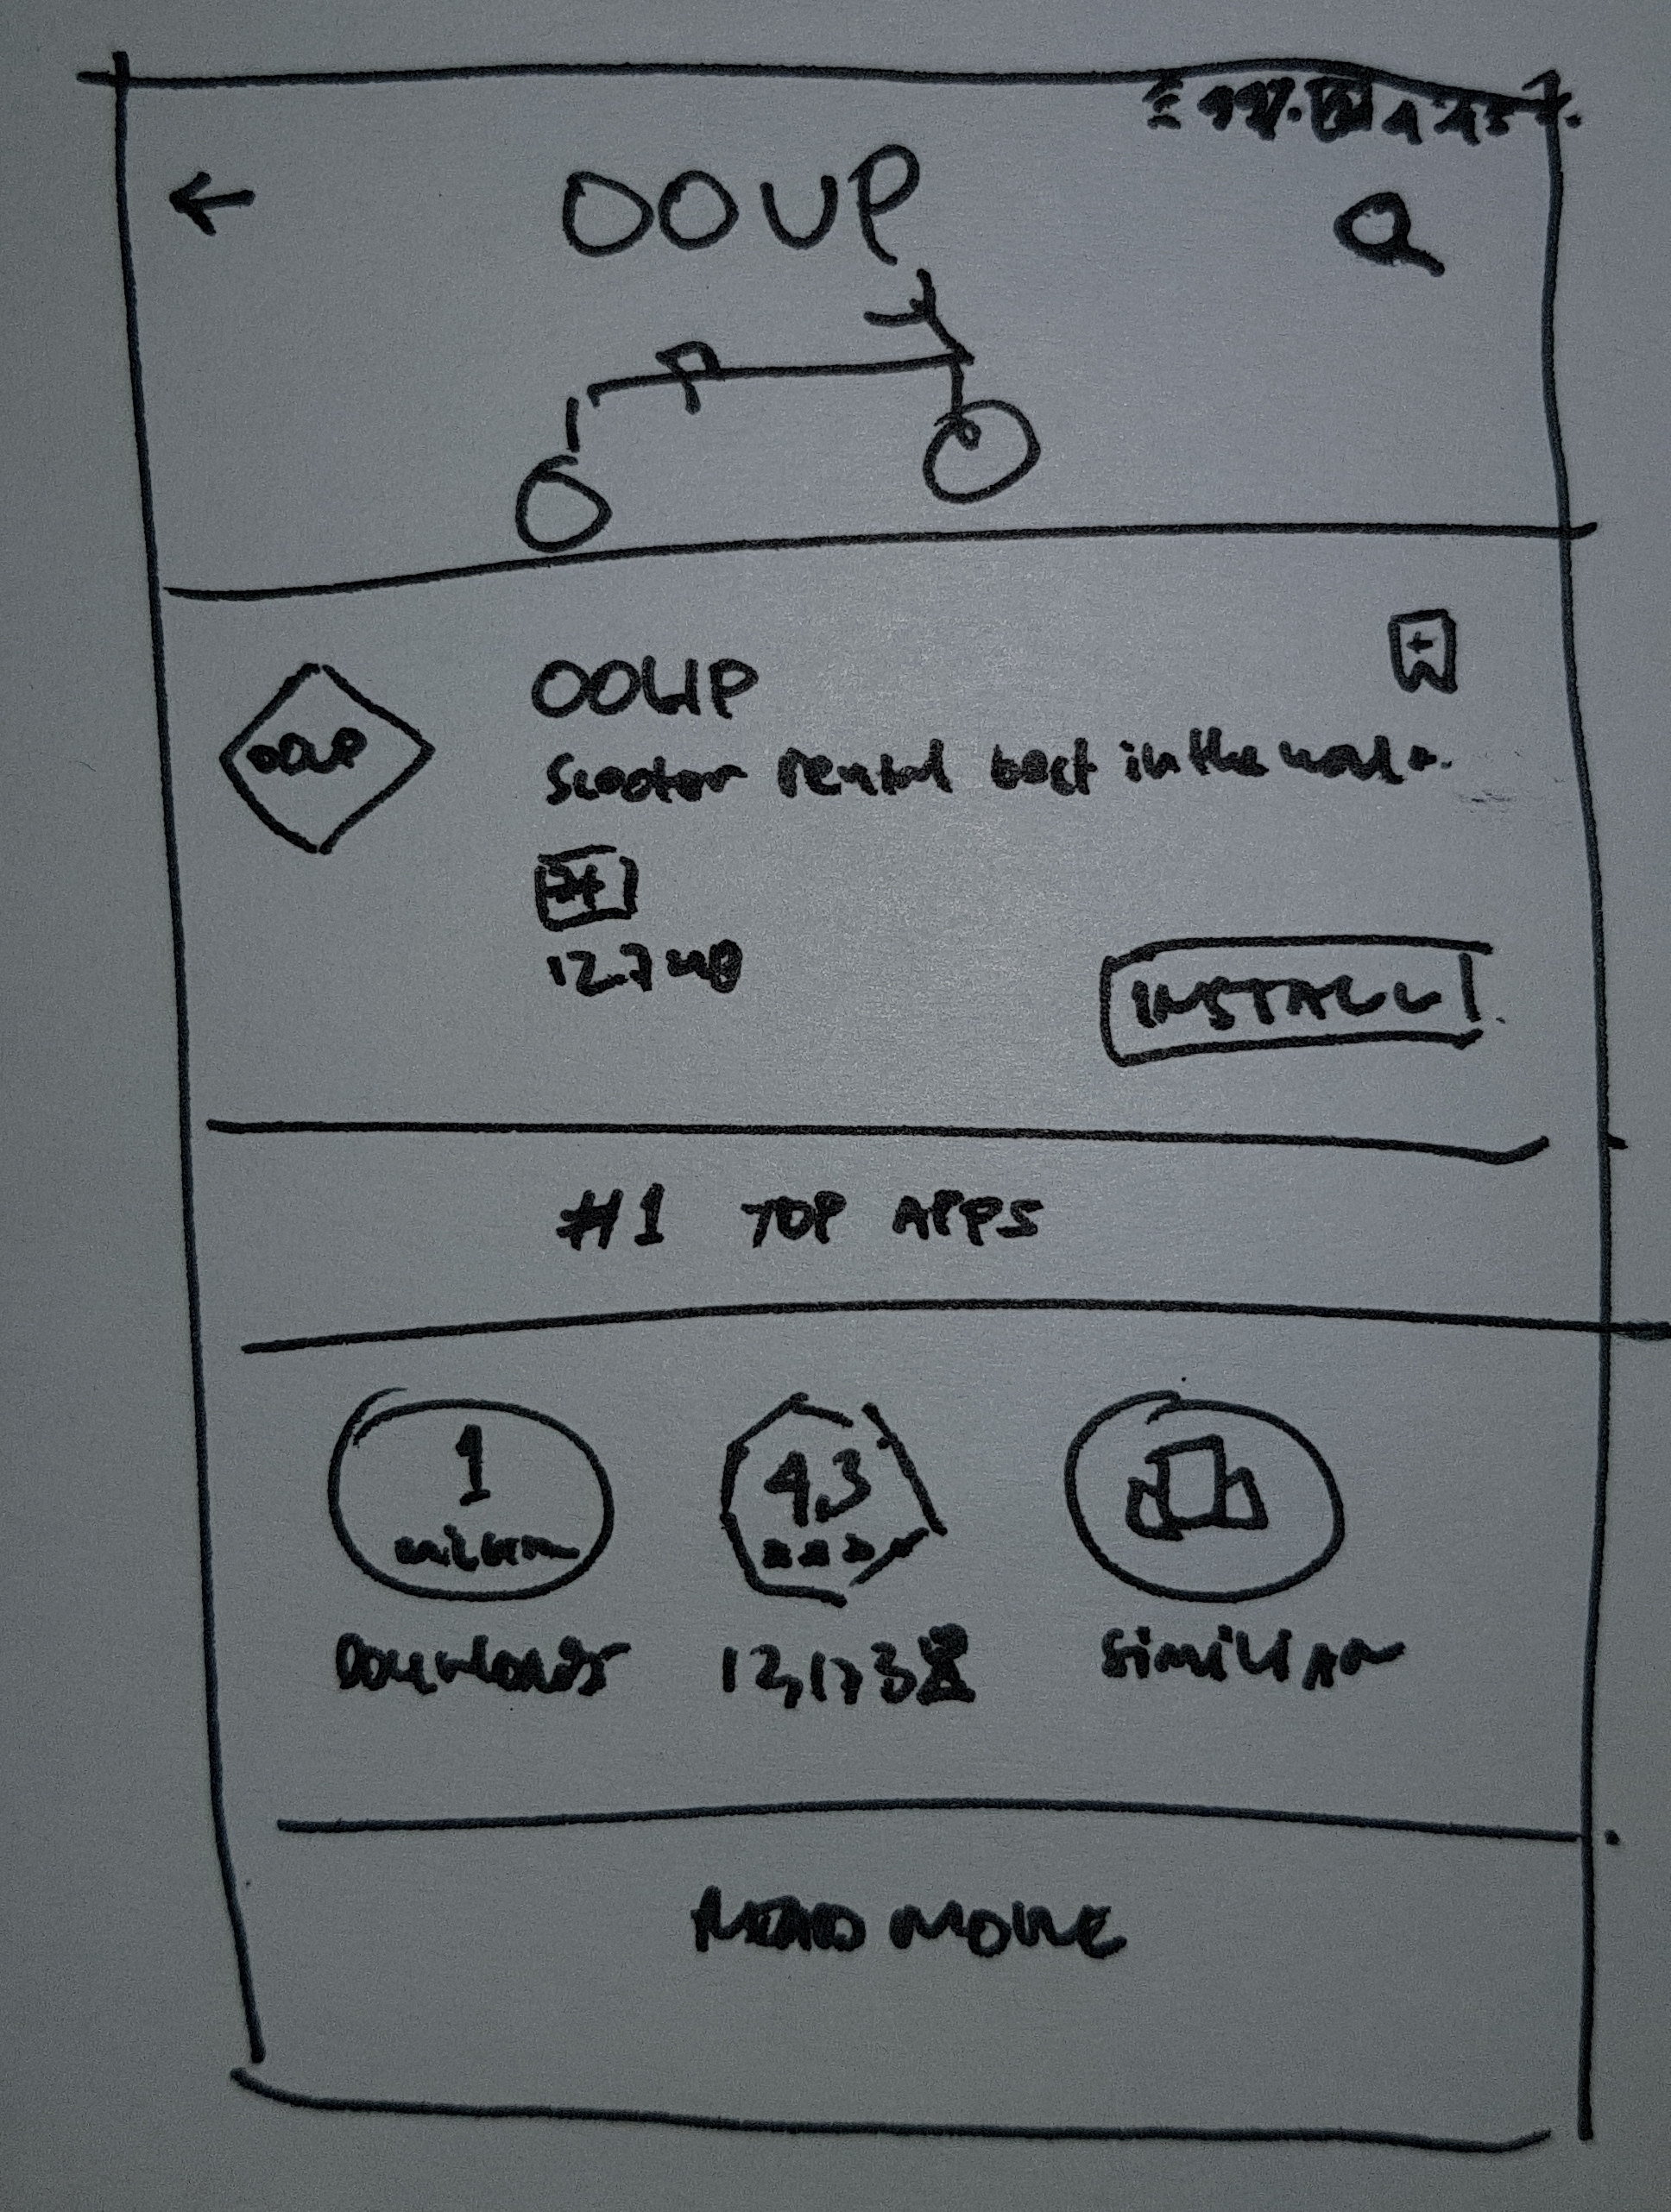 OOUP
OOUP
OOUP
Scooter rental best in the world.
3+
12.7 MB
INSTALL
#1 TOP APPS
1
million
4.3
Downloads
12,173
Similar
READ MORE